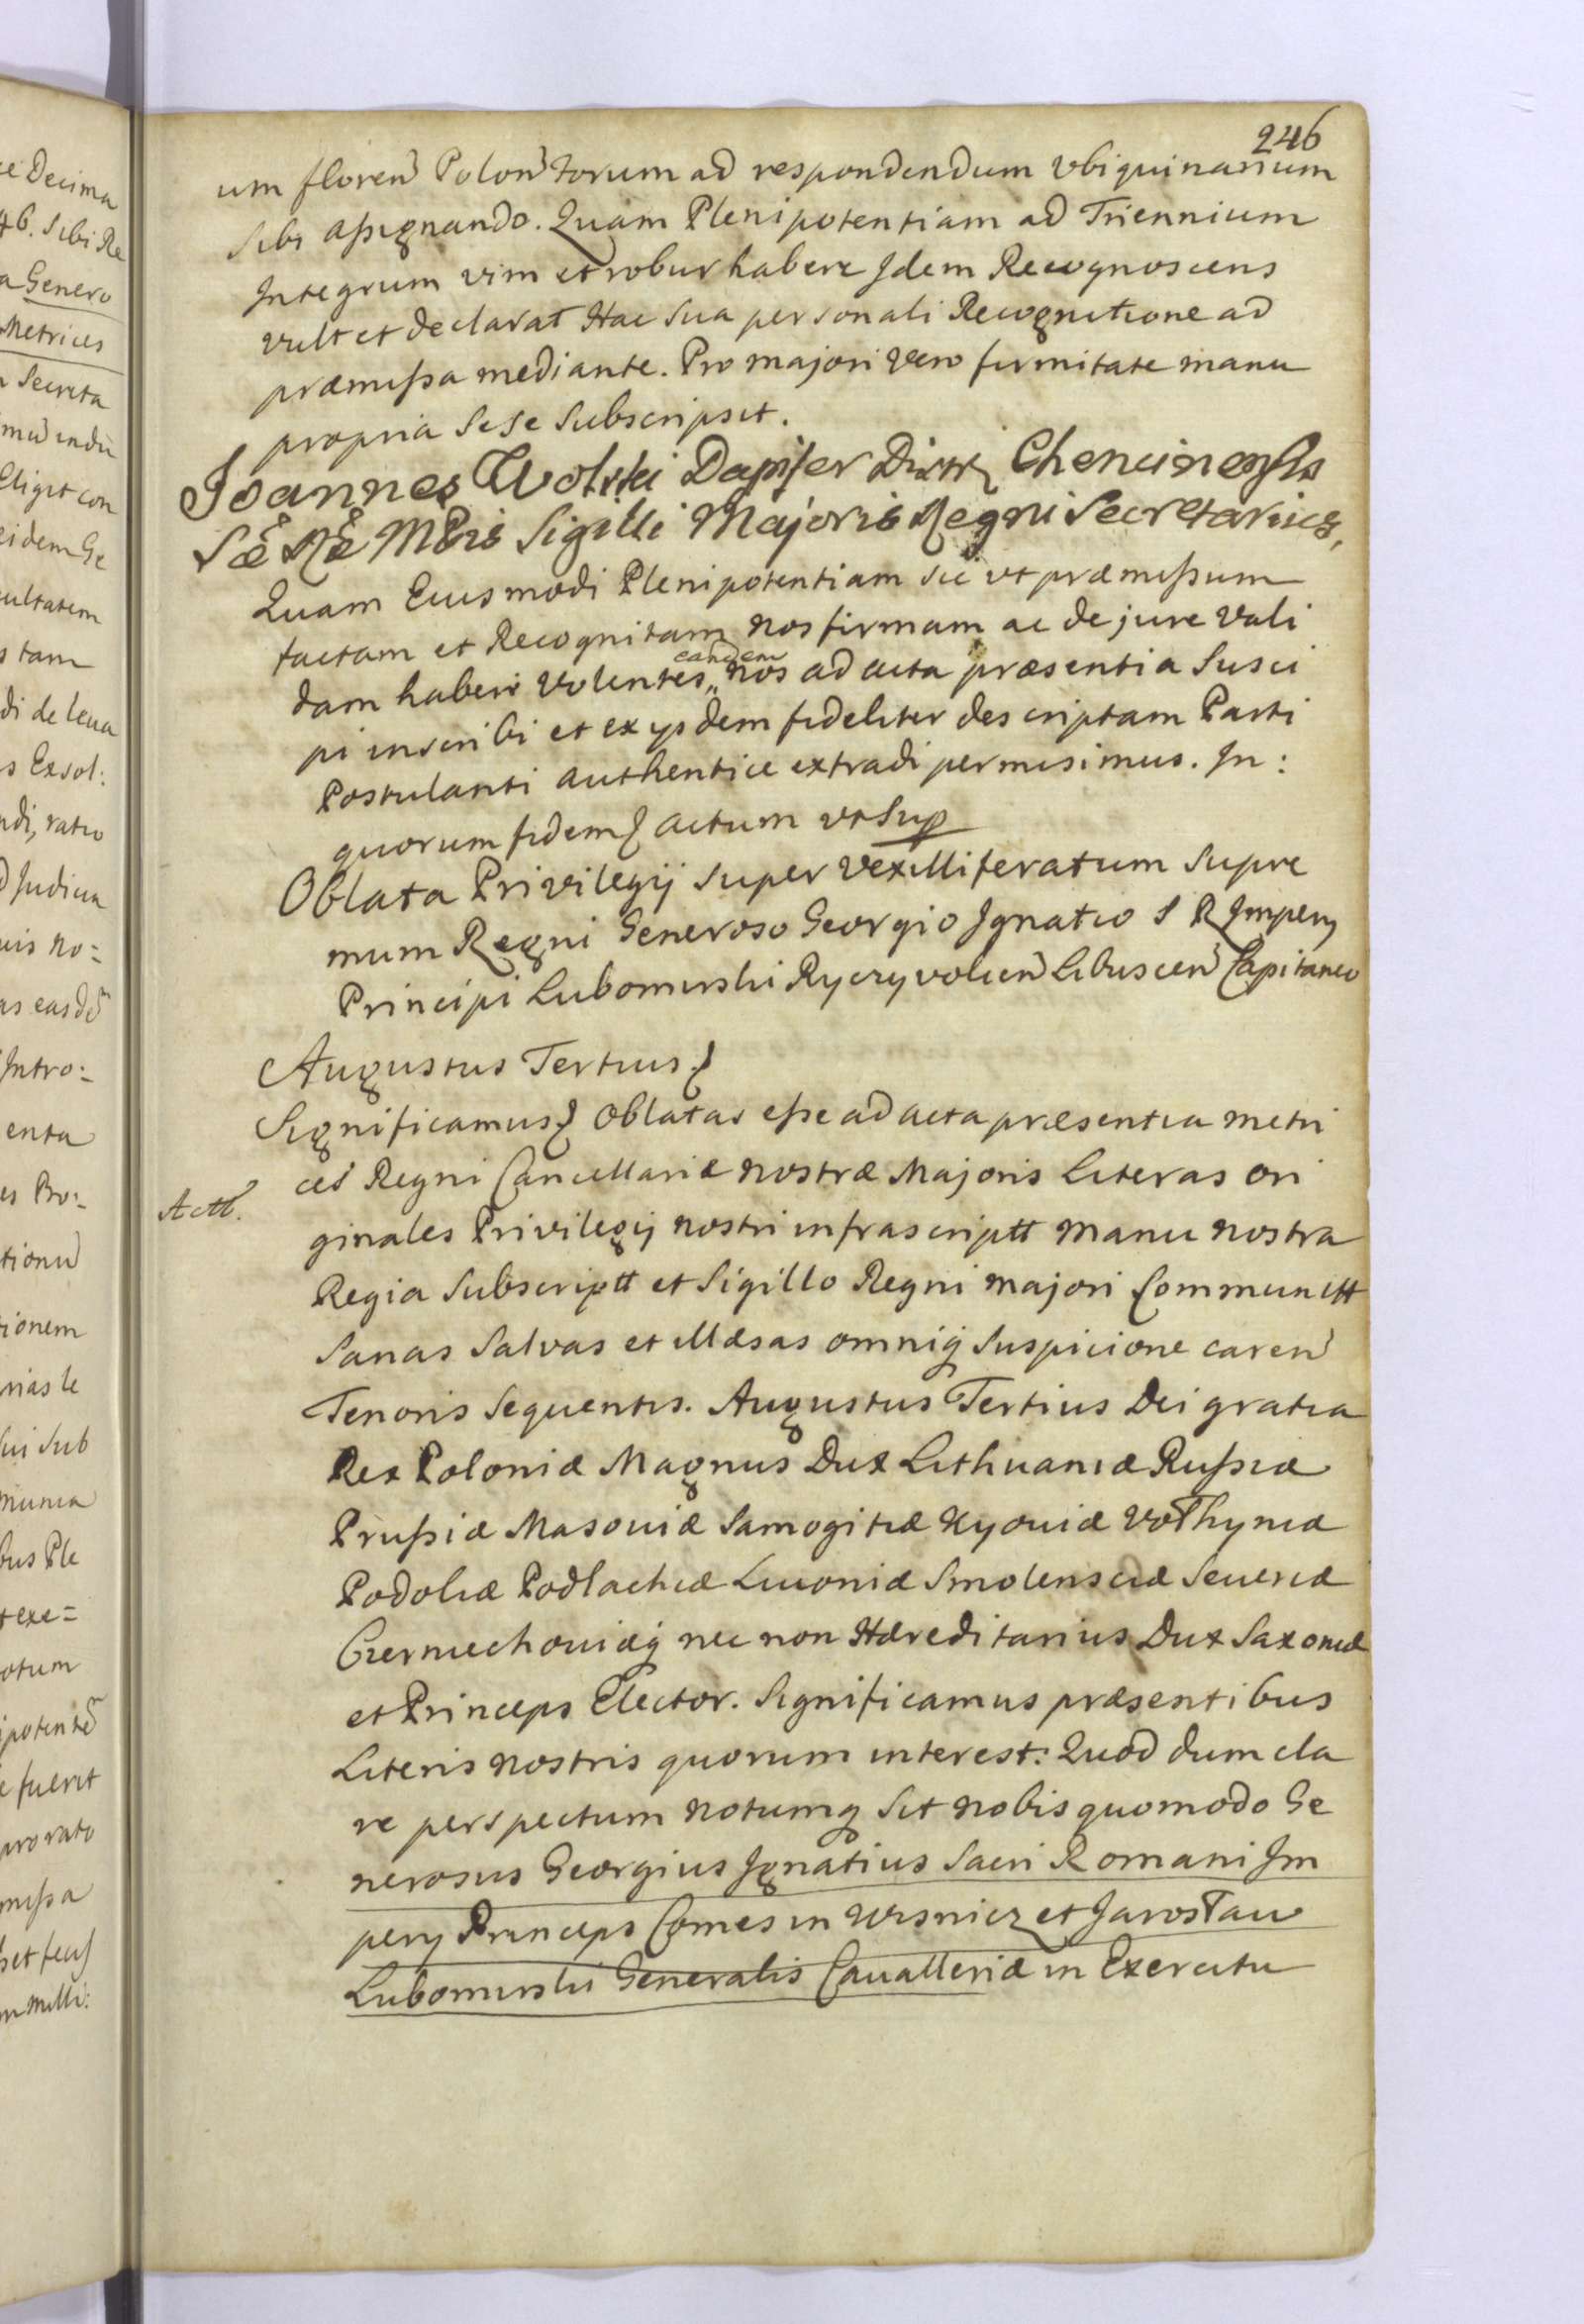 246
um floren Polon torum ad respondendum Vbiquinarium
sibi assignando. Quam Plenipotentiam ad Triennium
Integrum vim et robur habere Idem Recognoscens
vult et declarat Hac sua personali Recognitione ad
præmissa mediante. Pro majori vero firmitate manu
propria sese subscripsit.
Joannes Wolski Dapifer Chencinensis
Sæ Ræ Mtis Sigilli Majoris Regni Secretarius,
Quam Eiusmodi Plenipotentiam sic vt præmissum
factam et Recognitam nos firmam ac de jure Vali
eandem
dam haberi Volentes „ nos ad acta præsentia Susci
pi inscribi et ex ysdem fideliter descriptam Parti
Postulanti authentice extradi permisimus. In:
quorum fidem actum vt sup
Oblata Privilegij super Vexilliferatum Supre
mum Regni Generoso Georgio Ignatio S R Impery
Principi Lubomirski Ryczyvolien Libuscen Capitaneo
Augustus Tertius
Significamus Oblatas esse ad acta præsentia metri
ces Regni Cancellariæ nostræ Majoris Literas ori
Actt.
ginales Privilegij nostri infrascriptt manu nostra
Regia Subscriptt et Sigillo Regni majori Communitt
Sanas Salvas et illæsas omniq suspicione caren
Tenoris Sequentis. Augustus Tertius Dei gratia
Rex Poloniæ Magnus Dux Lithuaniæ Russiæ
Prussiæ Masoviæ Samogitiæ Kyoviæ Volhyniæ
Podoliæ Podlachiæ Livoniæ Smolensciæ Severiæ
Czerniechoviæq nec non Hæreditarius Dux Saxoniæ
et Princeps Elector. Significamus præsentibus
Literis nostris quorum interest: Quod dum cla
re perspectum notumq sit nobis quomodo Ge
nerosus Georgius Ignatius Sacri Romani Im
pery Princeps Comes in Wisnicz et Jarosław
Lubomirski Generalis Cavalleriæ in Exercitu